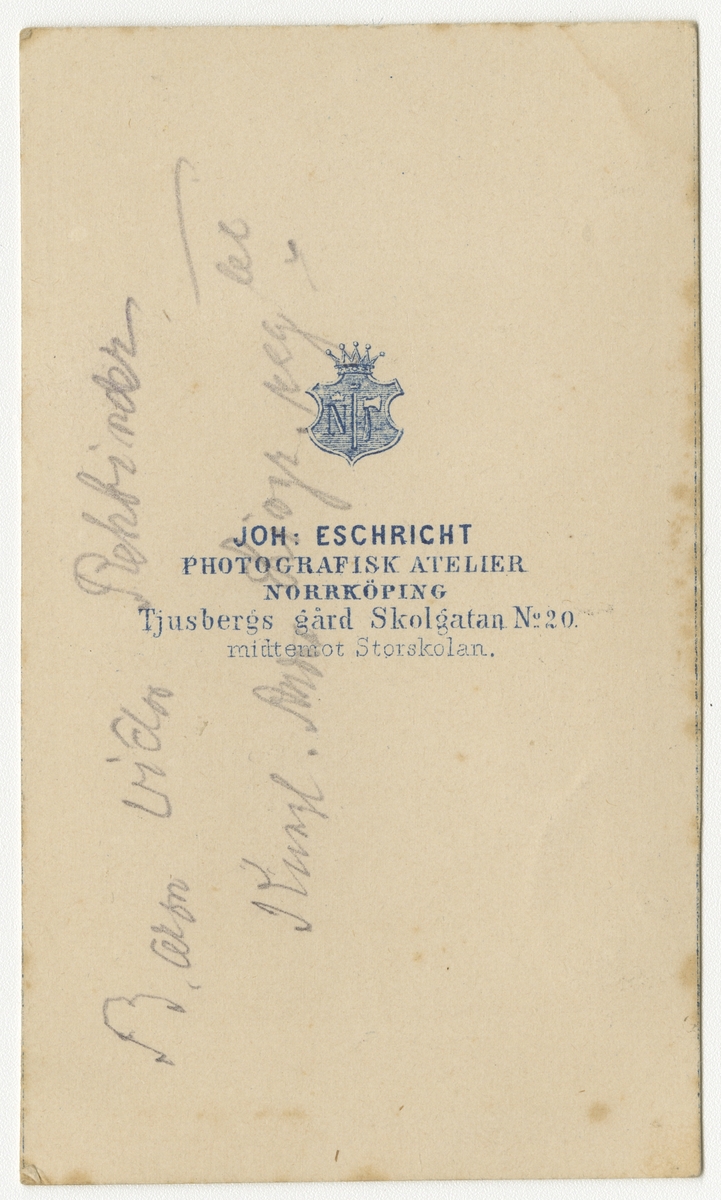 N T
JOH: ESCHRICHT
PHOTOGRAFISK ATELIER
NORRKÖPING
Tjusbergs gård Skolgatan No 20.
midtemot Storskolan.
Baron Vidar Rehbinder
Kungl.